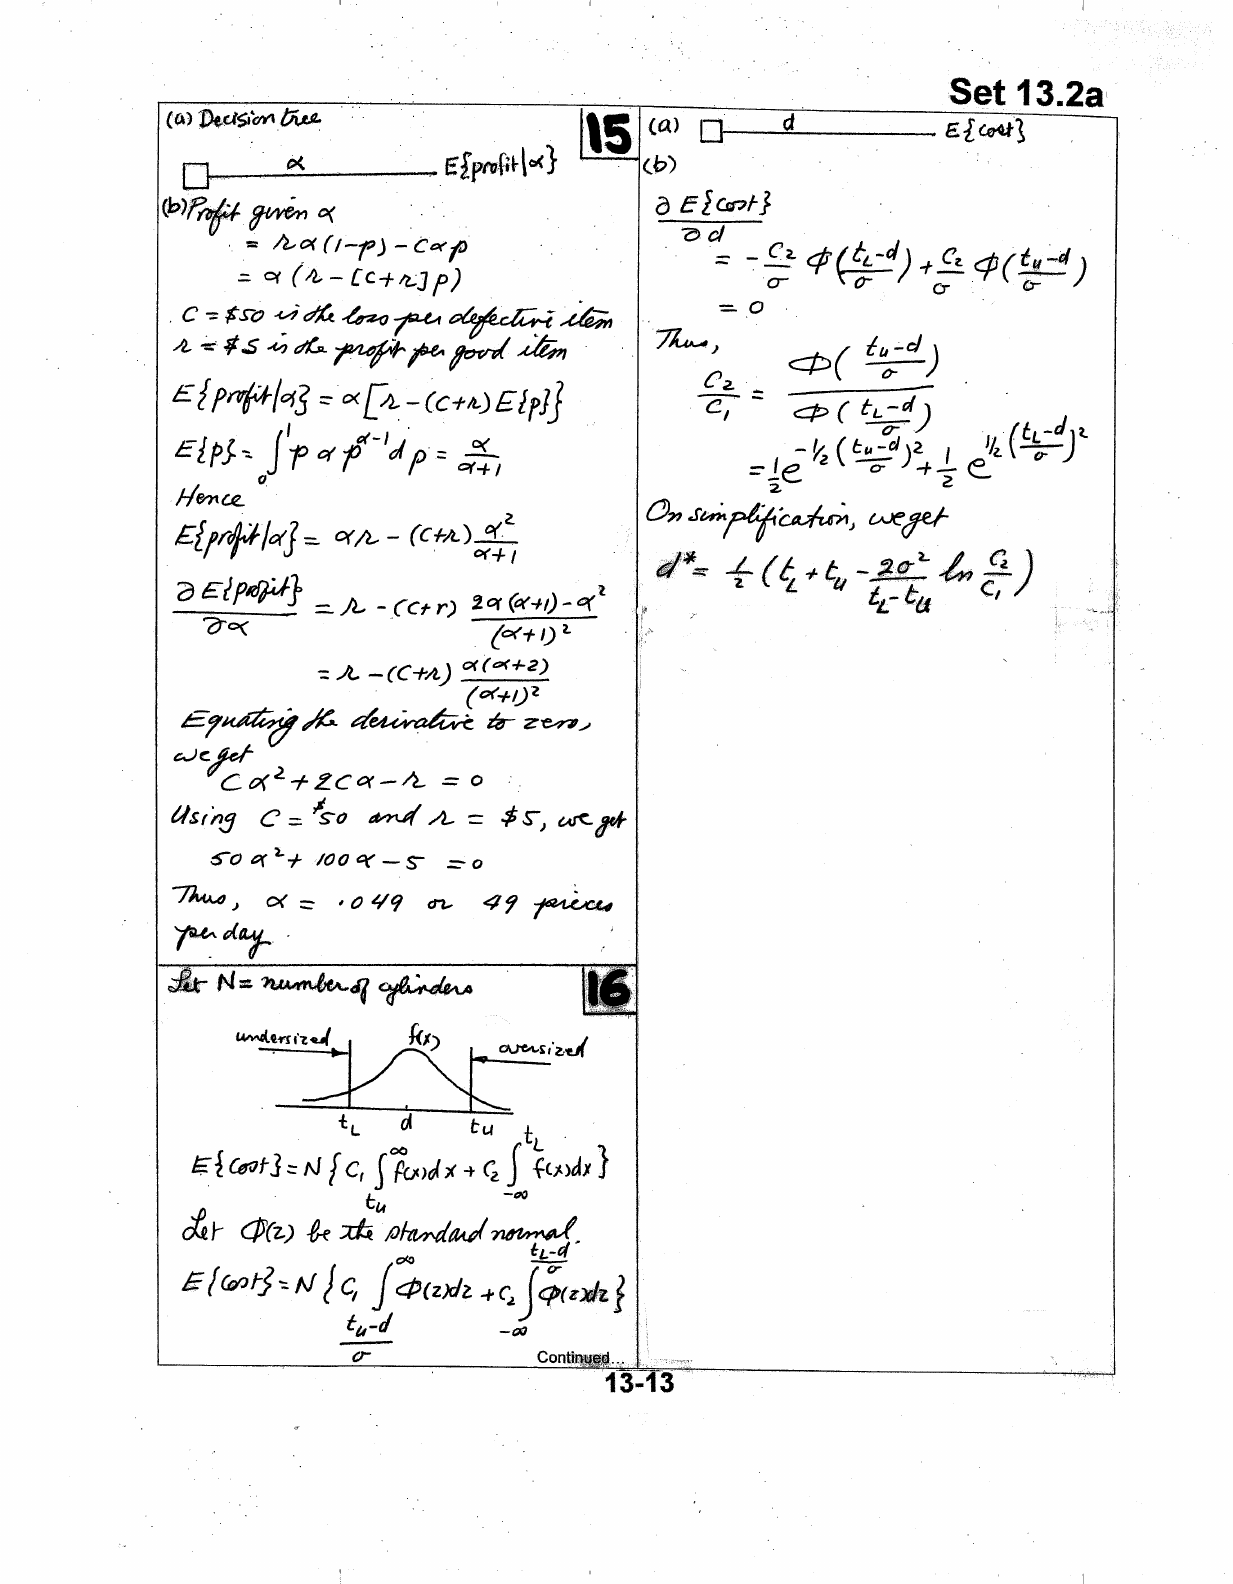 Set 13.2a
(a) Decision tree
15
α E{profit|α}
(b) Profit given α
= rα(1-p) - cαp
= α(r - [c+r]p)
C = $50 is the loss per defective item
r = $5 is the profit per good item
E{profit|α} = α[r - (c+r)E{p}}
E{p} = ∫₀¹ p α p^(α-1) dp = α/(α+1)
Hence
E{profit|α} = αr - (c+r) α²/(α+1)
∂E{profit}/∂α = r - (c+r) (2α(α+1) - α²)/(α+1)²
= r - (c+r) α(α+2)/(α+1)²
Equating the derivative to zero,
we get
Cα² + 2Cα - r = 0
Using C = $50 and r = $5, we get
50α² + 100α - 5 = 0
Thus, α = .049 or 49 pieces
per day.
Let N = number of cylinders
16
undersized f(x) oversized
t_L d t_u
E{cost} = N{C₁ ∫_{t_u}^∞ f(x)dx + C₂ ∫_{-∞}^{t_L} f(x)dx}
Let Φ(z) be the standard normal.
E{cost} = N{C₁ ∫_{(t_u-d)/σ}^∞ Φ(z)dz + C₂ ∫_{-∞}^{(t_L-d)/σ} Φ(z)dz}
Continued...
(a) d E{cost}
(b)
∂E{cost}/∂d
= - C₂/σ Φ((t_L-d)/σ) + C₂/σ Φ((t_u-d)/σ)
= 0
Thus,
C₂/C₁ = Φ((t_u-d)/σ) / Φ((t_L-d)/σ)
= 1/2 e^(-1/2((t_u-d)/σ)²) + 1/2 e^(1/2((t_L-d)/σ)²)
On simplification, we get
d* = 1/2 (t_L + t_u - 2σ²/(t_L-t_u) ln C₂/C₁)
13-13